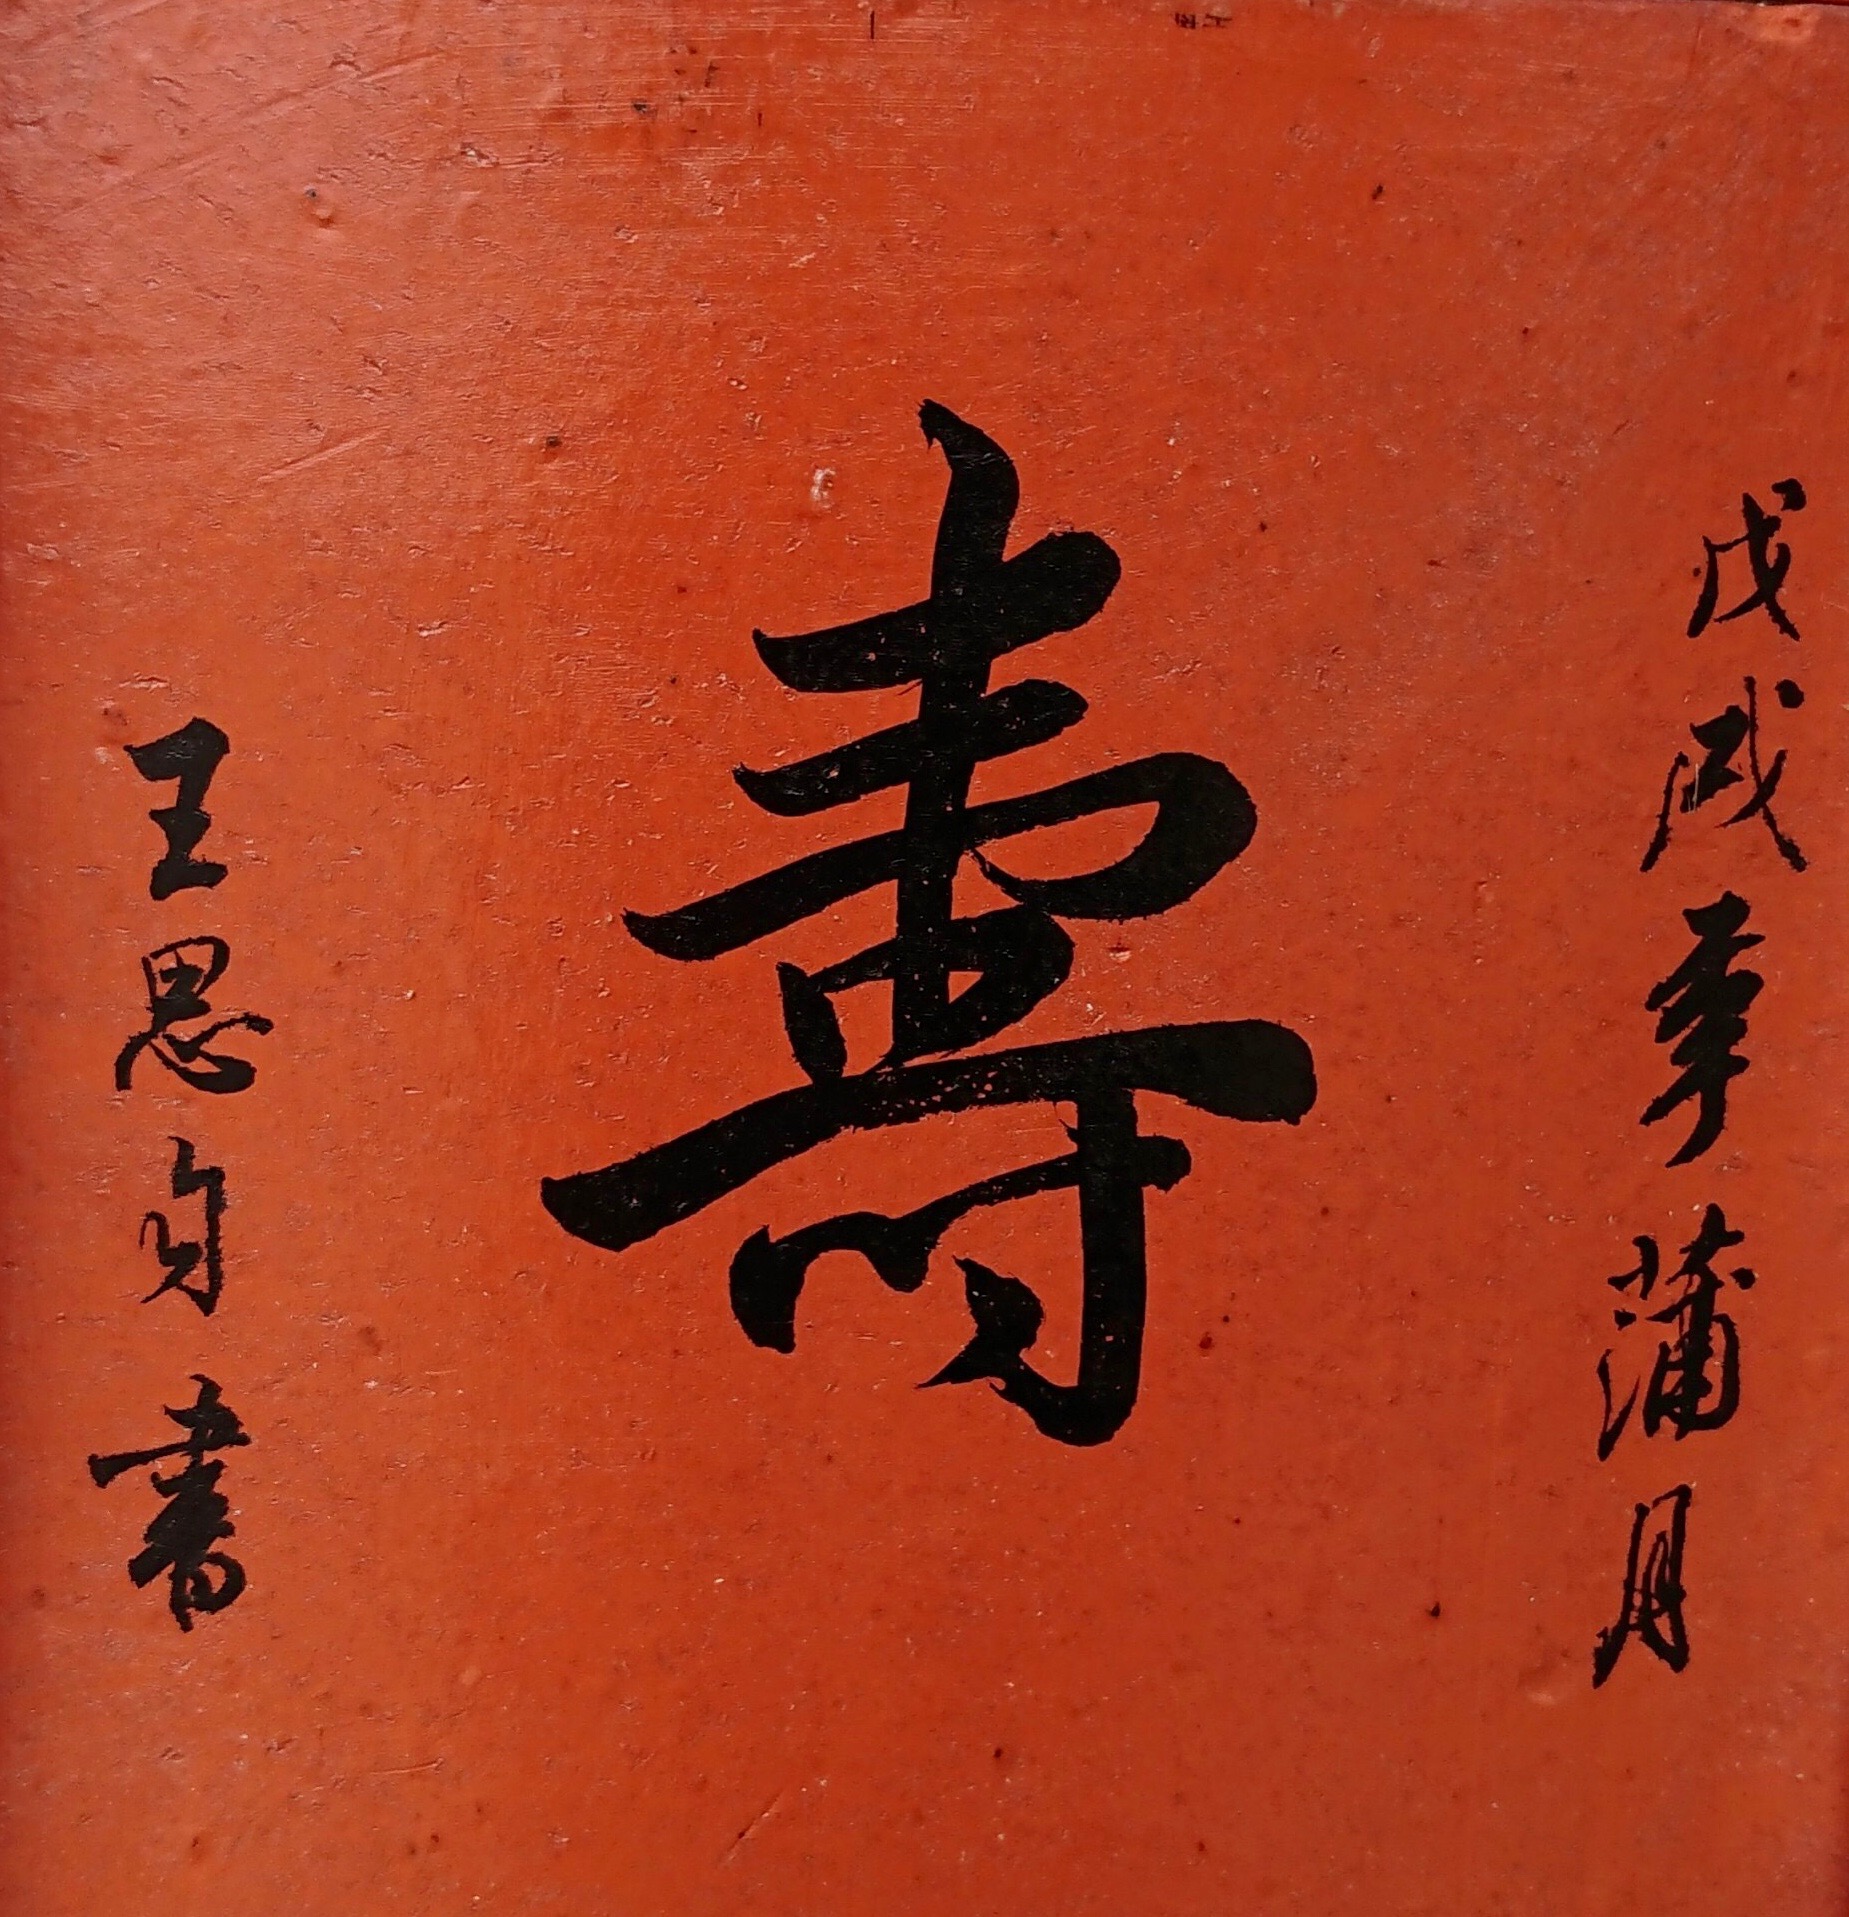 戊戌年蒲月
壽
王思自書